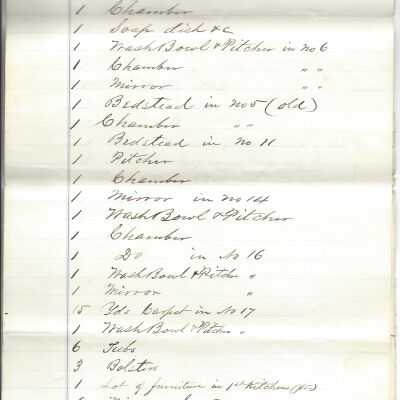 1 Chamber
1 Soap dish &c
1 Wash Bowl & Pitcher in no 6
1 Chamber " "
1 Mirror " "
1 Bedstead in no 5 (old)
1 Chamber " "
1 Bedstead in No 11
1 Pitcher
1 Chamber
1 Mirror in no 14
1 Wash Bowl & Pitcher
1 Chamber
1 Do in No 16
1 Wash Bowl & Pitcher "
1 Mirror "
15 Yds Carpet in No 17
1 Wash Bowl & Pitcher "
6 Tubs
3 Bolsters
1 Lot of furniture in 1st Kitchen